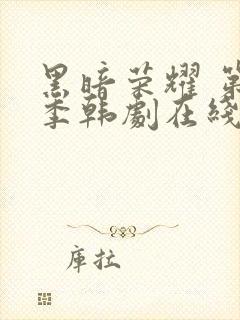 黑暗荣耀 第
季韩劇在綫
库拉